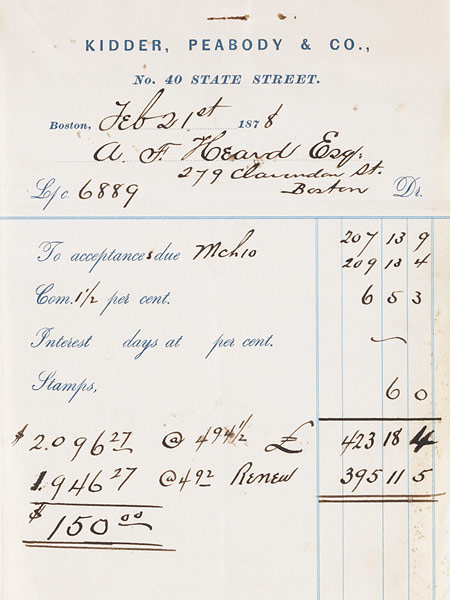 KIDDER, PEABODY & CO.,
No. 40 STATE STREET.
Boston, Feb 21st 1878
A. F. Heard Esq.
279 Clarendon St.
Boston
L/c 6889 Dr.
207 13 9
To acceptances due Mch 10 209 13 4
Com. 1 1/2 per cent. 6 5 3
Interest days at per cent. ~
Stamps, 6 0
$2.096 27 @ 4 94 1/2 £ 423 18 4
1.946 27 @ 4 92 Renew 395 11 5
$150 00